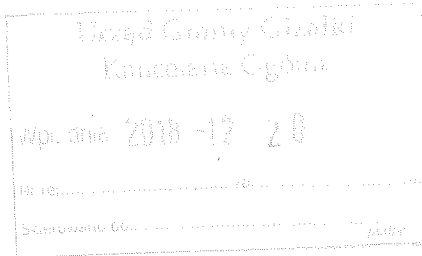 Urząd Gminy Gizałki
Kancelaria Ogólna
Wpł. dnia 2018 -12- 20
Nr rej.
Skierowano do